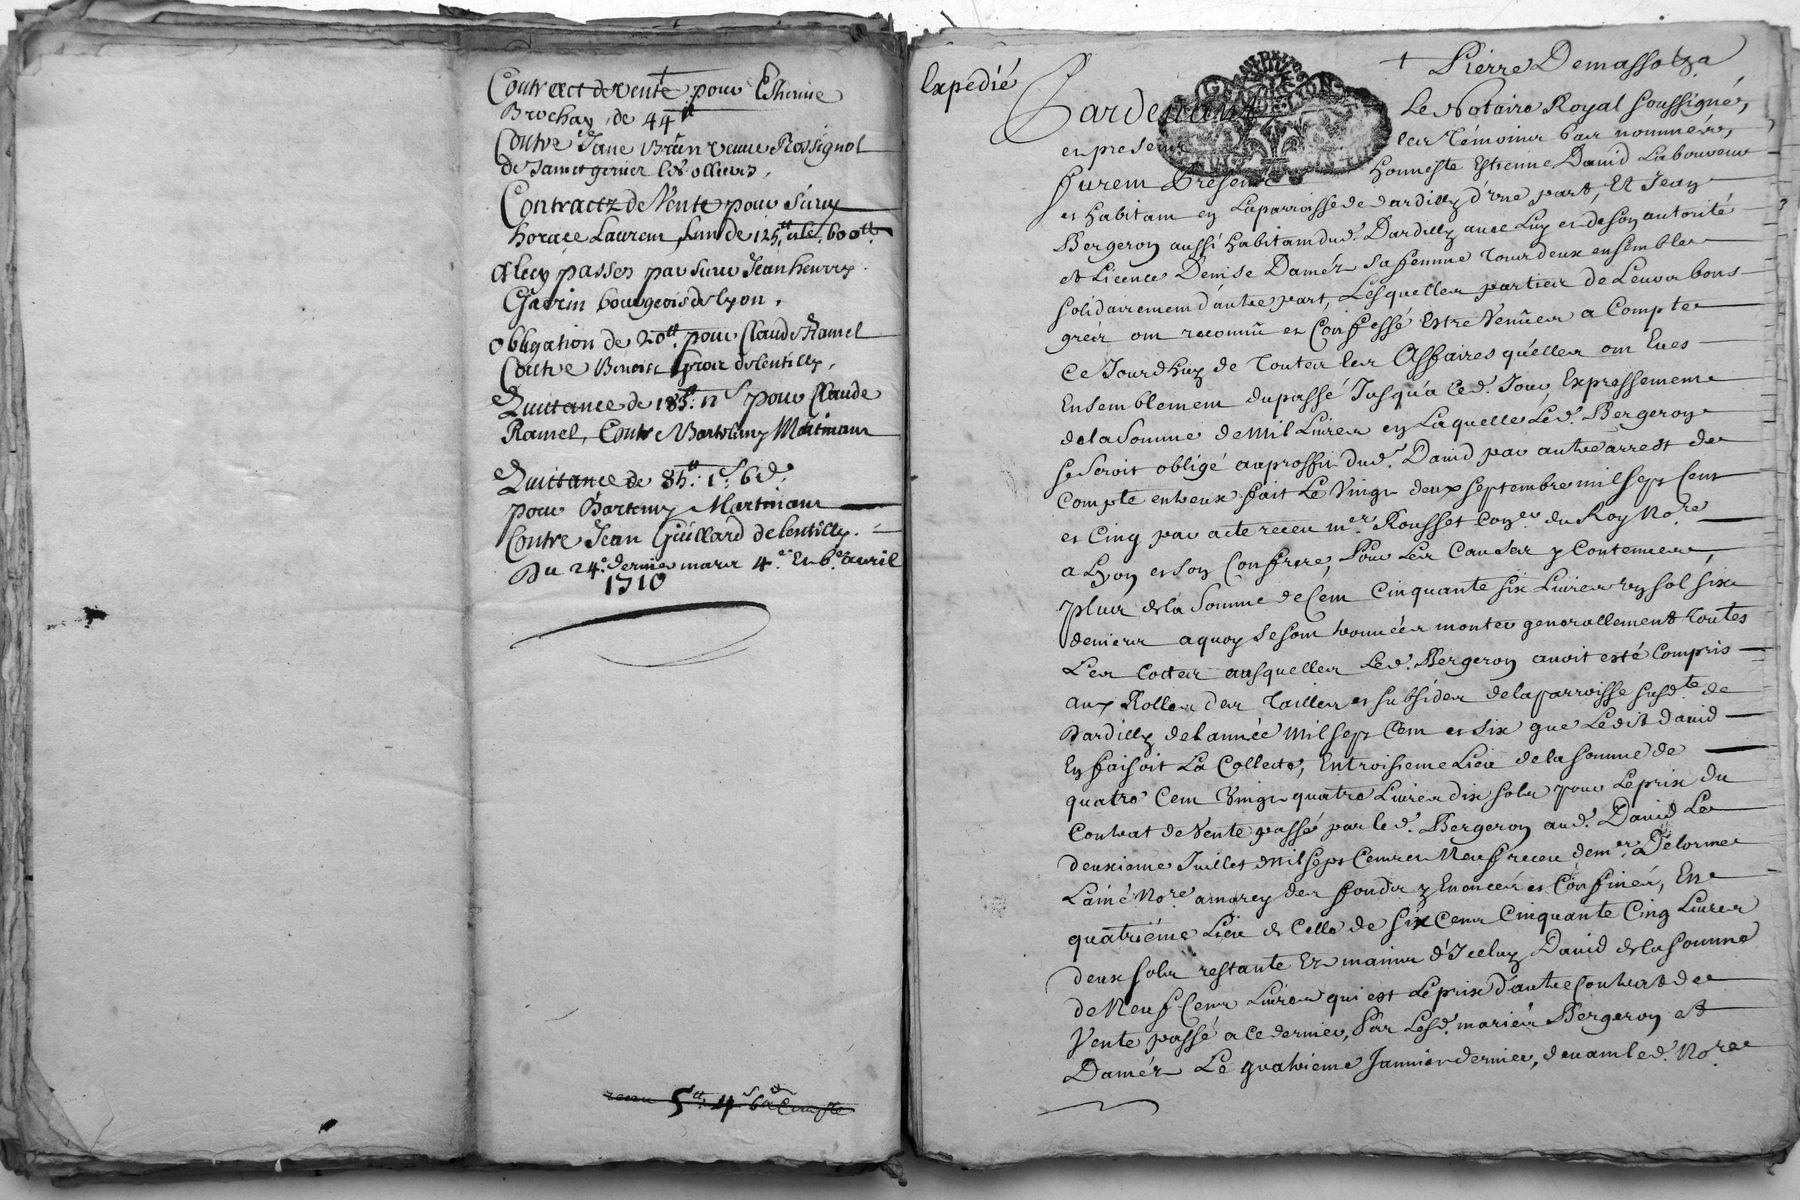 Contract de vente pour Estienne
Brochay, de 44tt
Contre Jane Brun veuve Rossignol
de Sainct genier les ollieres,
Contractz de Vente pour Sieur
horace Laurent, l'un de 125tt et le 600tt
passes par sieur Jean henry
Gavrin bourgeois de lyon,
obligation de 20tt pour Claude Ramel
Contre Benoist de lentilly,
Quittance de 18tt 11s pour Claude
Ramel, Contre Bartelemy Martiniere
Quittance de 8tt 1s 6d
pour Bartemy Martiniere
Contre Jean Guillard de lentilly.
Du 24e dernier mars 4e Et 6e avril
1710
receu 5tt 4s 6d
Expedié
+ Pierre Demassotza
Pardevant Le Notaire Royal soussigné,
et presens les Témoins bas nommés,
furent Présens honneste Estienne David Laboureur
et habitant en La parroisse de dardilly d'une part, Et Jean
Bergeron aussi habitant dud. Dardilly avec Luy et de son autorité
et Licence Denise Damés sa femme Tous deux ensemble
solidairement d'autre part, Lesquelles parties de Leurs bons
grés ont reconnû et Confessé Estre Venües a Compte
Ce Jourdhuy de Toutes les Affaires quelles ont Eues
Ensemblement du passé Jusqu'a Ced. Jour, Expressement
de la Somme de Mil Livres en Laquelle Led. Bergeron
se seroit obligé au proffit dud. David par autre arrest de
Compte entreux fait Le Vingt deux septembre mil sept Cent
et Cinq par acte receu mer Rousset Coner du Roy Nore
a Lyon et son Confrere, Pour Les Causes y Contenues,
plus de la Somme de Cent Cinquante six Livres un sol six
deniers a quoy se sont trouvées monter generallement toutes
Les Cottes ausquelles Led. Bergeron avoit esté Compris
aux Rolles des Tailles et subsides de la parroisse susdte de
Dardilly de l'année Mil sept Cent et six que Ledit david
En faisoit La Collecte, En troisieme Lieu de la Somme de
quatre Cent Vingt quatre Livres dix sols pour Le prix du
Contrat de Vente passé par led. Bergeron aud. David Le
deuxieme Juillet Mil sept Cent et Neuf receu de mer Delorme
L'ainé Nore a morey des fonds y Enoncés et Confinés, En
quatriéme Lieu de Celle de six Cent Cinquante Cinq Livres
deux sols restante Ez mains d'Iceluy David de la Somme
de Neuf Cent Livres qui est Le prix d'autre Contrat de
Vente passé a Ce dernier, Par Lesd. mariés Bergeron et
Damés Le quatrieme Janvier dernier, devant led. Nore